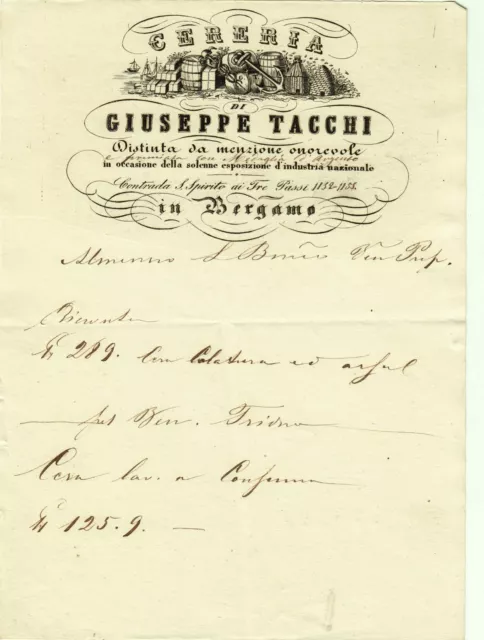 CERERIA
DI
GIUSEPPE TACCHI
Distinta da menzione onorevole
e premiata con Medaglia d'Argento
in occasione della solenne esposizione d'industria nazionale
Contrada S. Spirito ai Tre Passi 1152-1155.
in Bergamo
Almenno S Ven Prep.
289. Con Colatura ed
Ven. Triduo
Cera lav. a Consumo
125.9. —